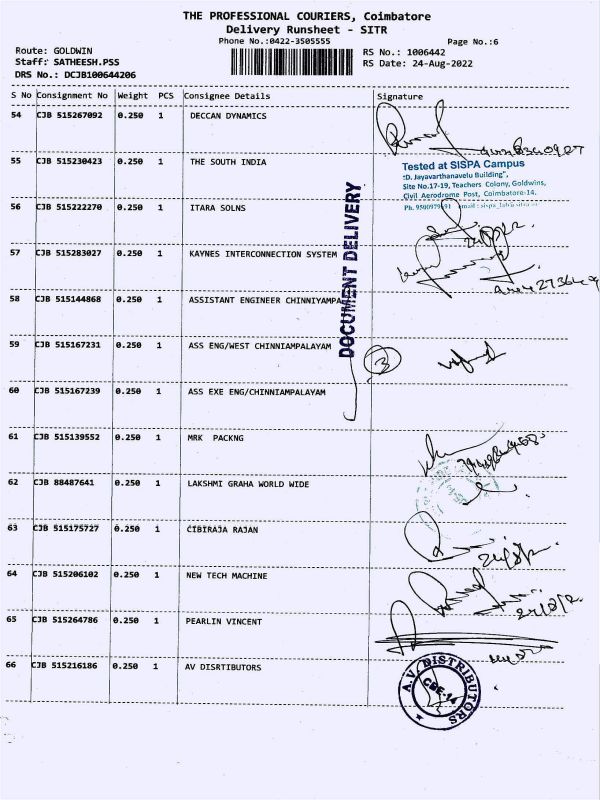 THE PROFESSIONAL COURIERS, Coimbatore
Delivery Runsheet - SITR
Phone No.:0422-3505555
Page No.:6
Route: GOLDWIN
RS No.: 1006442
Staff: SATHEESH.PSS
RS Date: 24-Aug-2022
DRS No.: DCJB100644206
S No Consignment No Weight PCS Consignee Details Signature
54 CJB 515267092 0.250 1 DECCAN DYNAMICS
55 CJB 515230423 0.250 1 THE SOUTH INDIA
Tested at SISPA Campus
"D. Jayavarthanavelu Building",
Site No.17-19, Teachers Colony, Goldwins,
Civil Aerodrome Post, Coimbatore-14.
56 CJB 515222270 0.250 1 ITARA SOLNS
57 CJB 515283027 0.250 1 KAYNES INTERCONNECTION SYSTEM
DOCUMENT DELIVERY
58 CJB 515144868 0.250 1 ASSISTANT ENGINEER CHINNIYAMPA
59 CJB 515167231 0.250 1 ASS ENG/WEST CHINNIAMPALAYAM
3
60 CJB 515167239 0.250 1 ASS EXE ENG/CHINNIAMPALAYAM
61 CJB 515139552 0.250 1 MRK PACKNG
62 CJB 88487641 0.250 1 LAKSHMI GRAHA WORLD WIDE
63 CJB 515175727 0.250 1 CIBIRAJA RAJAN
64 CJB 515206102 0.250 1 NEW TECH MACHINE
65 CJB 515264786 0.250 1 PEARLIN VINCENT
66 CJB 515216186 0.250 1 AV DISRTIBUTORS
A.V. DISTRIBUTORS
CBE-14